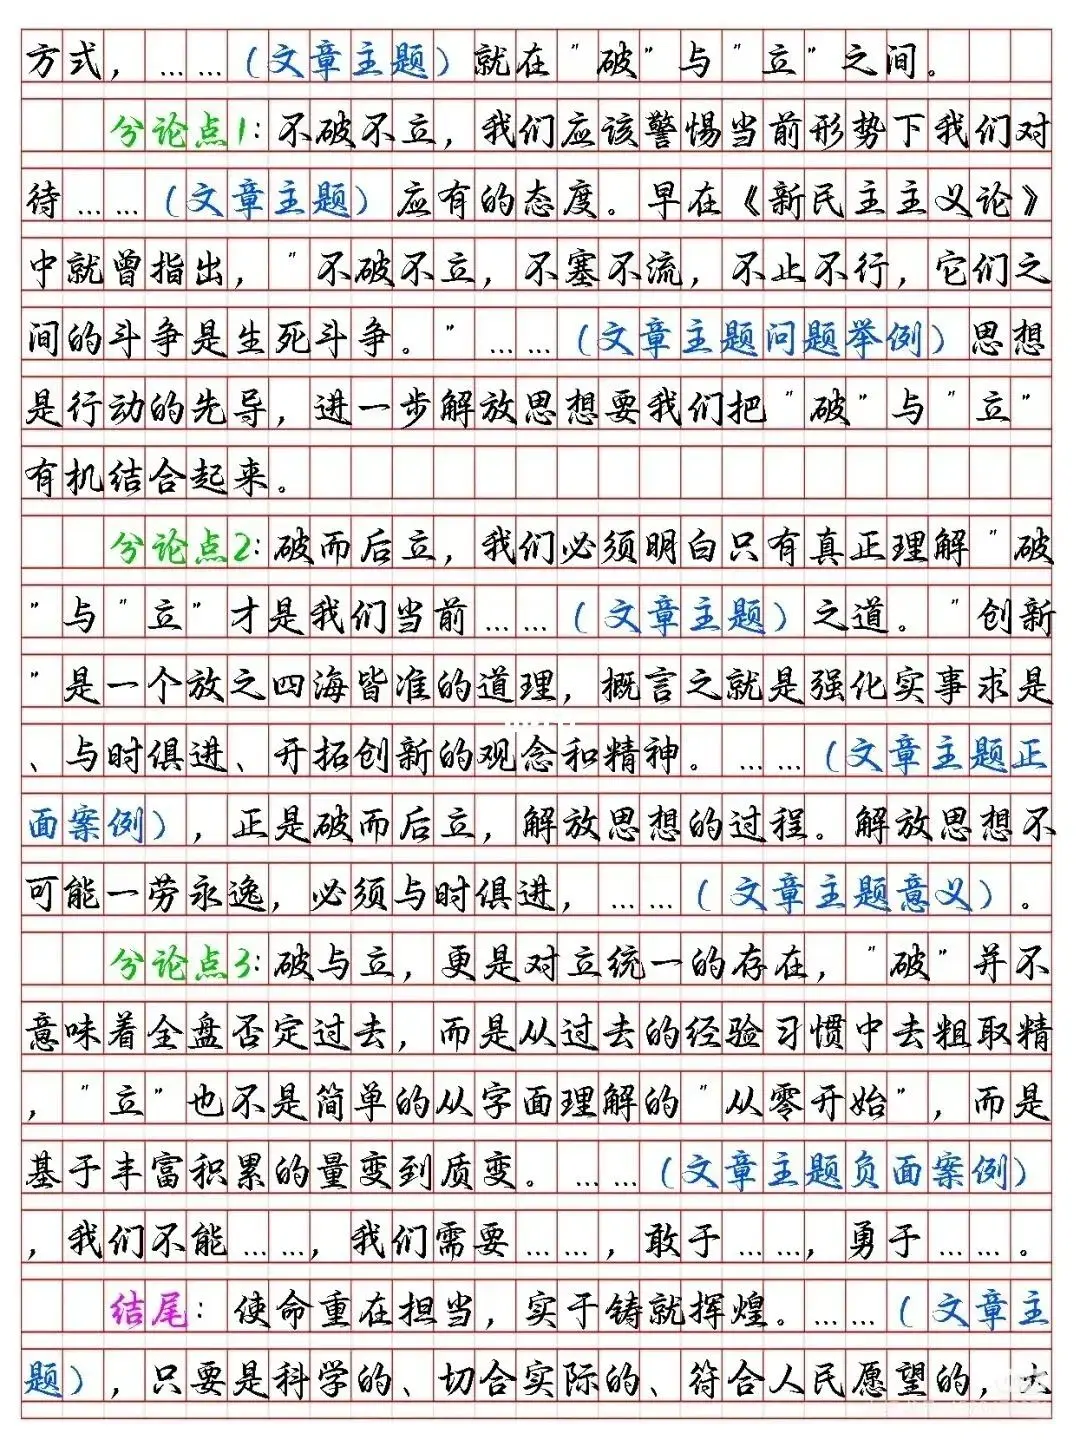 方式，……（文章主题）就在“破”与“立”之间。
分论点1：不破不立，我们应该警惕当前形势下我们对
待……（文章主题）应有的态度。早在《新民主主义论》
中就曾指出，“不破不立，不塞不流，不止不行，它们之
间的斗争是生死斗争。”……（文章主题问题举例）思想
是行动的先导，进一步解放思想要我们把“破”与“立”
有机结合起来。
分论点2：破而后立，我们必须明白只有真正理解“破
”与“立”才是我们当前……（文章主题）之道。“创新
”是一个放之四海皆准的道理，概言之就是强化实事求是
、与时俱进、开拓创新的观念和精神。……（文章主题正
面案例），正是破而后立，解放思想的过程。解放思想不
可能一劳永逸，必须与时俱进，……（文章主题意义）。
分论点3：破与立，更是对立统一的存在，“破”并不
意味着全盘否定过去，而是从过去的经验习惯中去粗取精
，“立”也不是简单的从字面理解的“从零开始”，而是
基于丰富积累的量变到质变。……（文章主题负面案例）
，我们不能……，我们需要……，敢于……，勇于……。
结尾：使命重在担当，实干铸就辉煌。……（文章主
题），只要是科学的、切合实际的、符合人民愿望的，大